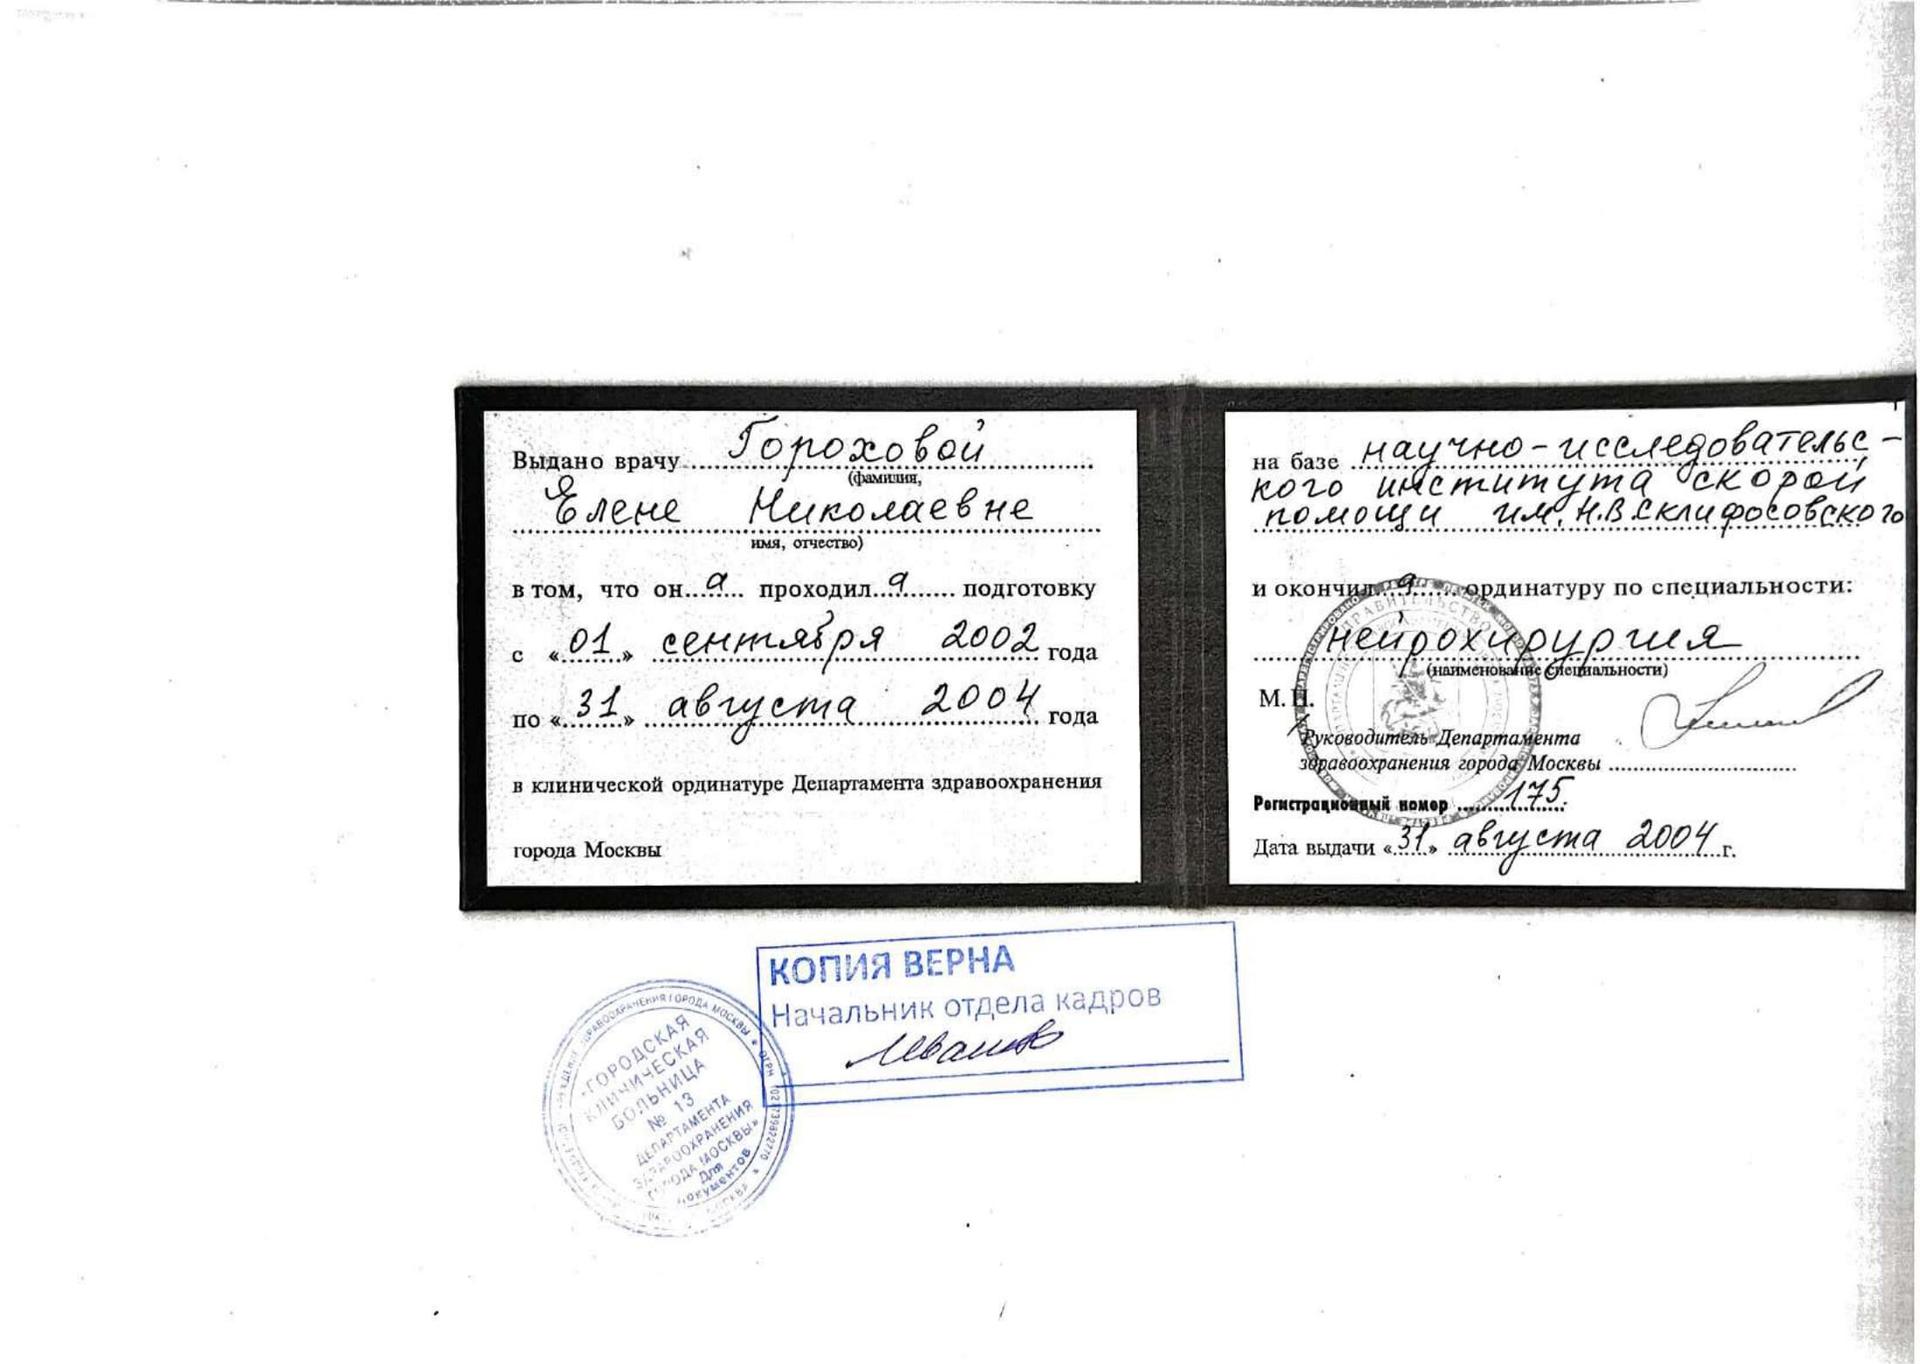 Выдано врачу Гороховой
(фамилия,
Елене Николаевне
имя, отчество)
в том, что он а проходил а подготовку
с «01» сентября 2002 года
по «31» августа 2004 года
в клинической ординатуре Департамента здравоохранения
города Москвы
на базе научно-исследовательс-
кого института скорой
помощи им. Н.В.Склифосовского
и окончил а ординатуру по специальности:
нейрохирургия
(наименование специальности)
М. П.
Руководитель Департамента
здравоохранения города Москвы
Регистрационный номер 175.
Дата выдачи «31» августа 2004 г.
КОПИЯ ВЕРНА
Начальник отдела кадров
ЗДРАВООХРАНЕНИЯ ГОРОДА МОСКВЫ * ОГРН
«ГОРОДСКАЯ
КЛИНИЧЕСКАЯ
БОЛЬНИЦА
№ 13
ДЕПАРТАМЕНТА
ЗДРАВООХРАНЕНИЯ
ГОРОДА МОСКВЫ»
Для
документов
МОСКВА
ПРАВИТЕЛЬСТВО